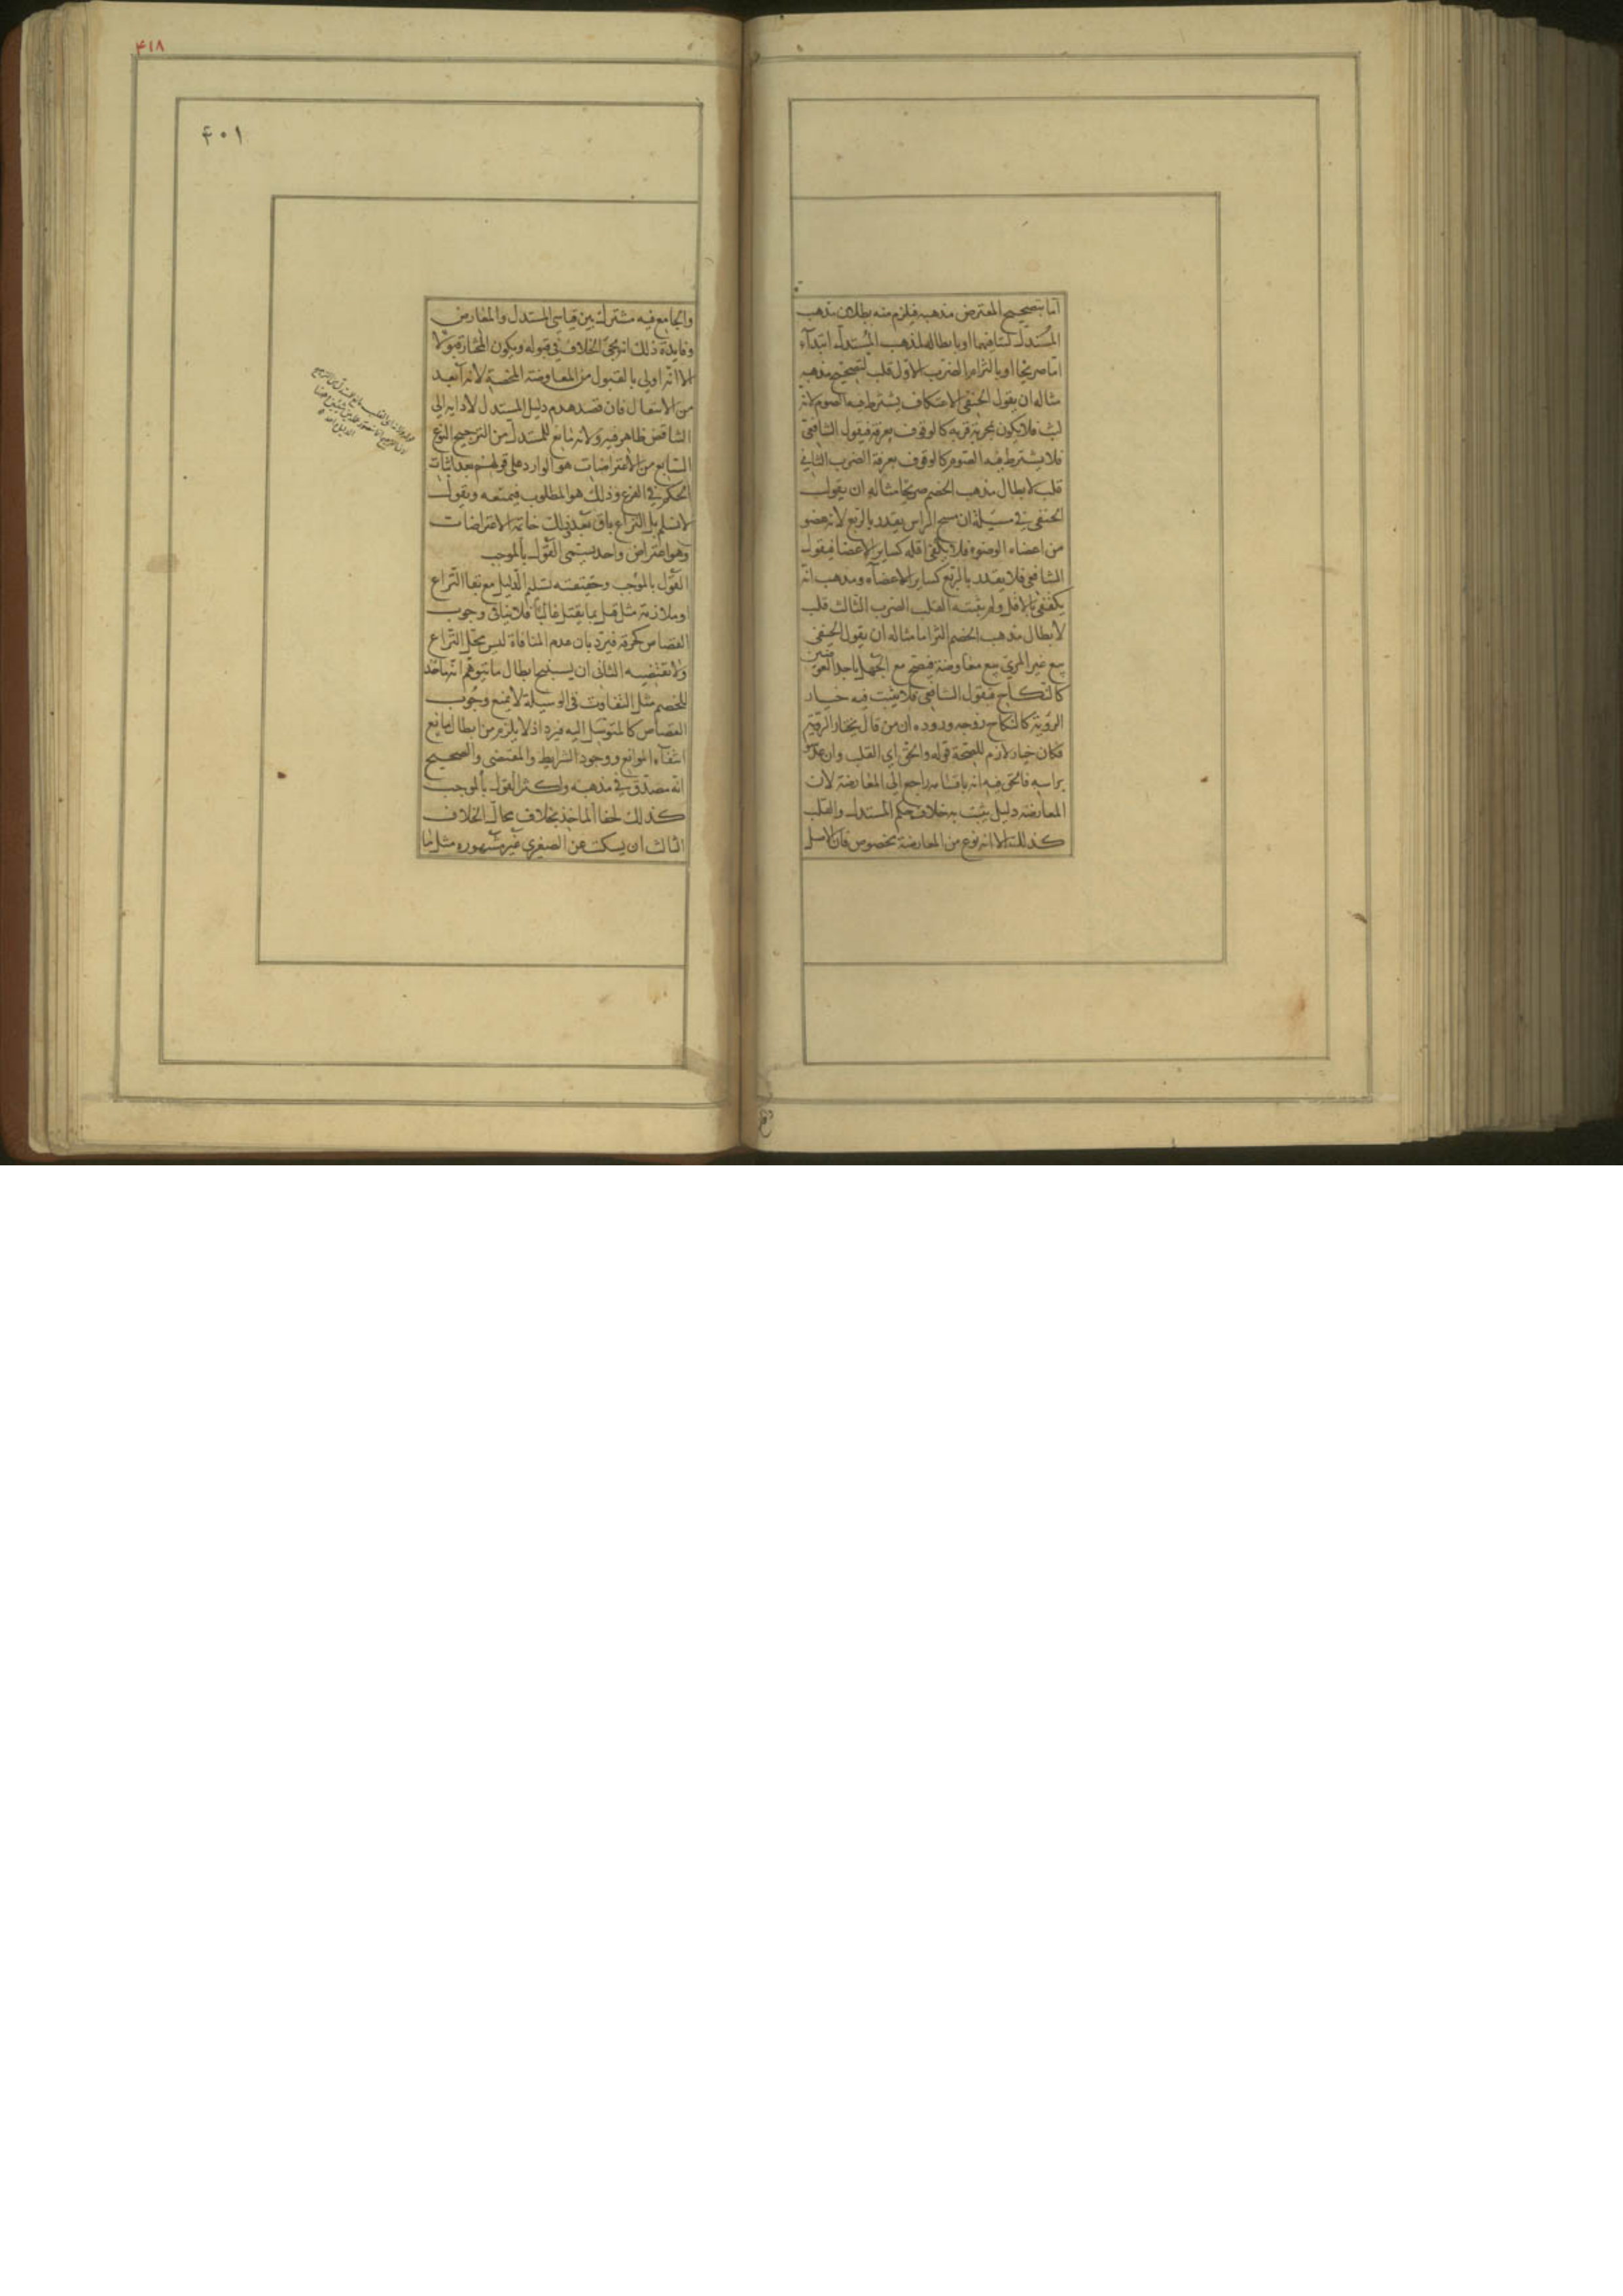 اما بتصحيح المعترض مذهبه فيلزم منه بطلان مذهب
المستدل لتنافيهما او بابطاله لمذهب المستدل ابتدآء
اما صريحا او بالتزام الضرب الاول قلب لتصحيح مذهبه
مثاله ان يقول الحنفى الاعتكاف يشترط فيه الصوم لانه
لبث فلا يكون بمجرده قربه كالوقوف بعرفة فيقول الشافعى
فلا يشترط فيه الصوم كالوقوف بعرفة الضرب الثانى
قلب لابطال مذهب الخصم صريحا مثاله ان يقول
الحنفى فى مسيلة ان مسح الراس يقدر بالربع لانه عضو
من اعضاء الوضوء فلا يكفى اقله كساير الاعضا فيقول
الشافعى فلا يقدر بالربع كساير الاعضآء ومذهب انه
يكفى بالاقل ولم يثبته القلب الضرب الثالث قلب
لابطال مذهب الخصم التزاما مثاله ان يقول الحنفى
بيع غير المرئ بيع معاوضة فيصح مع الجهل باحد العوضين
كالنكاح فيقول الشافعى فلا يثبت فيه خيار
الروية كالنكاح وجه وروده ان من قال بخيار الروية
فكان خيار لازم للصحة قوله والحق اى القلب وان عد
براسه فالحق فيه انه باقسامه راجع الى المعارضة لان
المعارضة دليل يثبت به خلاف حكم المستدل والقلب
كذلك الا انه نوع من المعارضة مخصوص فان الاصل
٤١٨
٤٠١
والجامع فيه مشترك بين قياسى المستدل والمعارض
وفايدة ذلك انه يجئ الخلاف فى قبوله ويكون المختار قبولا
الا انه اولى بالقبول من المعاوضة المحضة لانه ابعد
من الانتقال فان قصد هدم دليل المستدل لادايه الى
التناقض ظاهر فيه ولانه مانع للمستدل من الترجيح النوع
السابع من الاعتراضات هو الوارد على قولهم بعد اثبات
الحكم فى الفرع وذلك هو المطلوب فيمنعه ويقول
لا نسلم بل النزاع باق بعد ذلك خاتمة الاعتراضات
وهو اعتراض واحد يسمى القول بالموجب
القول بالموجب وحقيقته تسليم الدليل مع بقا النزاع
او ملازمته مثل قتل بما يقتل غالبا فلا ينافى وجوب
القصاص كحرقه فيرد بان عدم المنافاة ليس محل النزاع
ولا تقتضيه الثانى ان يستنتج ابطال ما يتوهم انه ماخذ
للخصم مثل التفاوت فى الوسيلة لا يمنع وجوب
القصاص كالمتوسل اليه فيرد اذ لا يلزم من ابطال مانع
انتفآء الموانع ووجود الشرايط والمقتضى والصحيح
انه مصدق فى مذهبه واكثر القول بالموجب
كذلك لخفا الماخذ بخلاف محال الخلاف
الثالث ان يسكت عن الصغرى غير مشهوره مثل ما